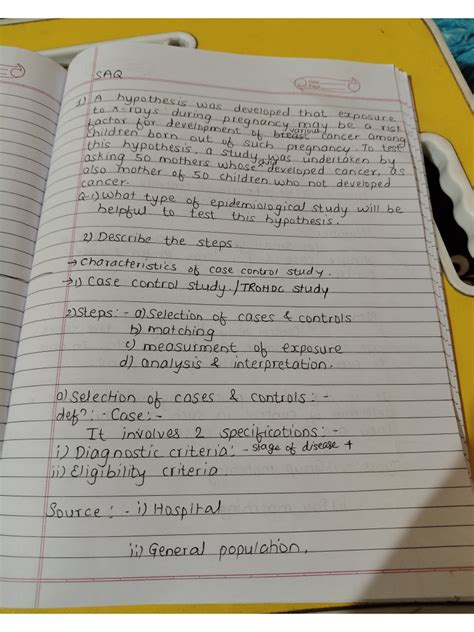 SAQ
1) A hypothesis was developed that exposure
to x-rays during pregnancy may be a risk
factor for development of breast various cancer among
children born out of such pregnancy. To test
this hypothesis, a study was undertaken by
asking 50 mothers whose child developed cancer, as
also mother of 50 children who not developed
cancer.
Q-1) What type of epidemiological study will be
helpful to test this hypothesis.
2) Describe the steps
→ Characteristics of case control study.
→ 1) Case control study. / TROHOC study
2) Steps: - a) Selection of cases & controls
b) matching
c) measurment of exposure
d) analysis & interpretation.
a) Selection of cases & controls: -
defn: - Case: -
It involves 2 specifications: -
i) Diagnostic criteria: - stage of disease
ii) Eligibility criteria.
Source: - i) Hospital
ii) General population.